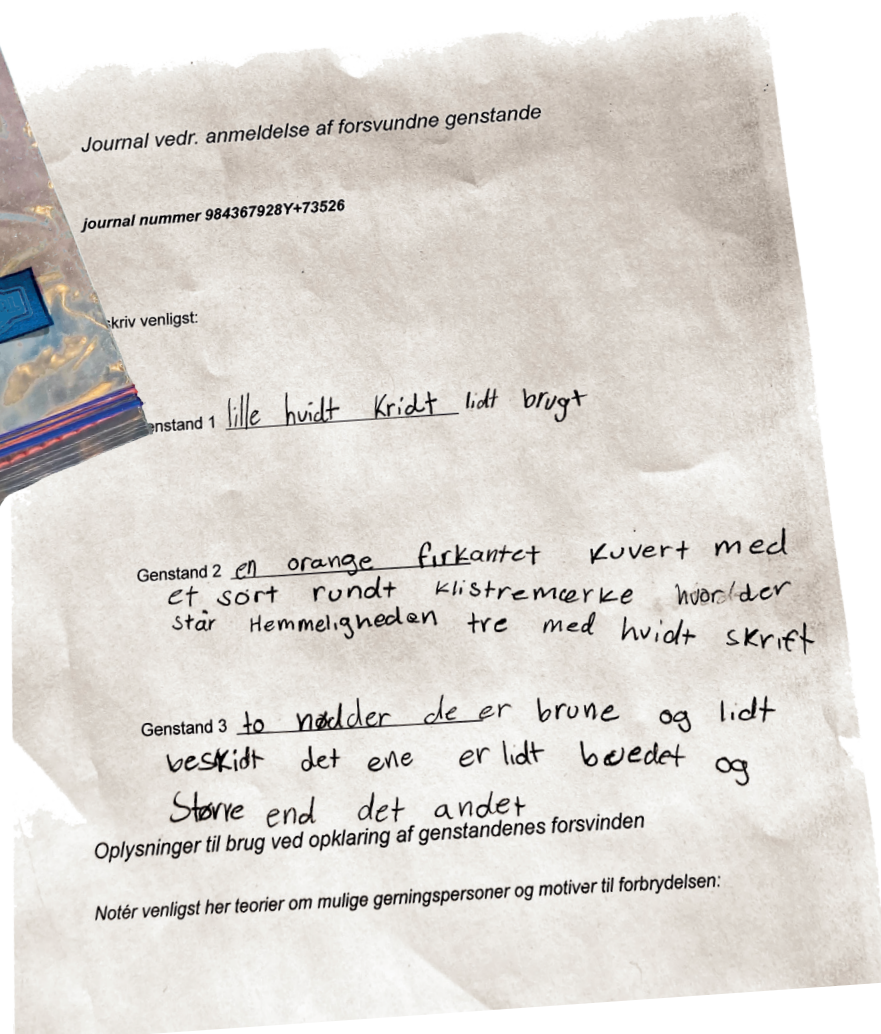 Journal vedr. anmeldelse af forsvundne genstande
journal nummer 984367928Y+73526
skriv venligst:
enstand 1 lille hvidt Kridt lidt brugt
Genstand 2 en orange firkantet kuvert med
et sort rundt klistremærke hvor der
står Hemmeligheden tre med hvidt skrift
Genstand 3 to nødder de er brune og lidt
beskidt det ene er lidt og
Større end det andet
Oplysninger til brug ved opklaring af genstandenes forsvinden
Notér venligst her teorier om mulige gerningspersoner og motiver til forbrydelsen: